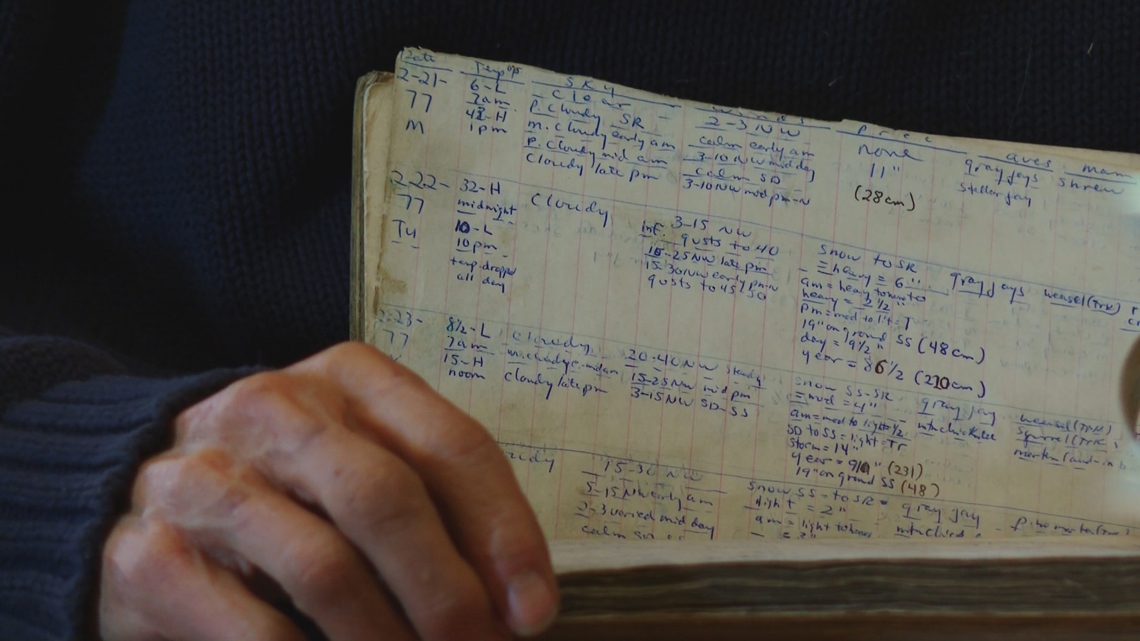 Date Temp SKY Winds Prec aves mam
2-21-
77
M
6-L
7am
42-H
1pm
- clear -
P. Cloudy SR
m. cloudy early am
P. cloudy mid am
cloudy late pm
2-3 NW
calm early am
3-10 NW midday
calm SD
3-10 NW mid pm-N
none
11"
(28cm)
gray jays
stellar jay
shrew
2-22-
77
Tu
32-H
midnight
10-L
10pm
temp dropped
all day
cloudy
3-15 NW
gusts to 40
15-25 NW late pm
15-30 NW early pm-N
gusts to 45 SD
snow to SR
= heavy = 6"
am = heavy to
heavy = 2 1/2"
pm = mod to lit = T
19" on ground SS (48cm)
day = 9 1/2"
year = 86 1/2 (220cm)
gray jays
weasel (TRK)
2-23-
77
8 1/2-L
7am
15-H
noon
cloudy
m. cloudy
cloudy late pm
20-40 NW steady
15-25 NW mid pm
3-15 NW SD-SS
snow SS-SR
= mod = 4"
am = mod to light 1/2
SD to SS = light = Tr
Storm = 14"
year = 91" (231)
19" on ground SS (48)
gray jay
mtn chickadee
weasel (TRK)
squirrel (TRK)
marten
15-30 NW
5-15 NW early am
2-3 varied mid day
calm
snow SS-to SR =
light = 2"
am = light to
gray jay